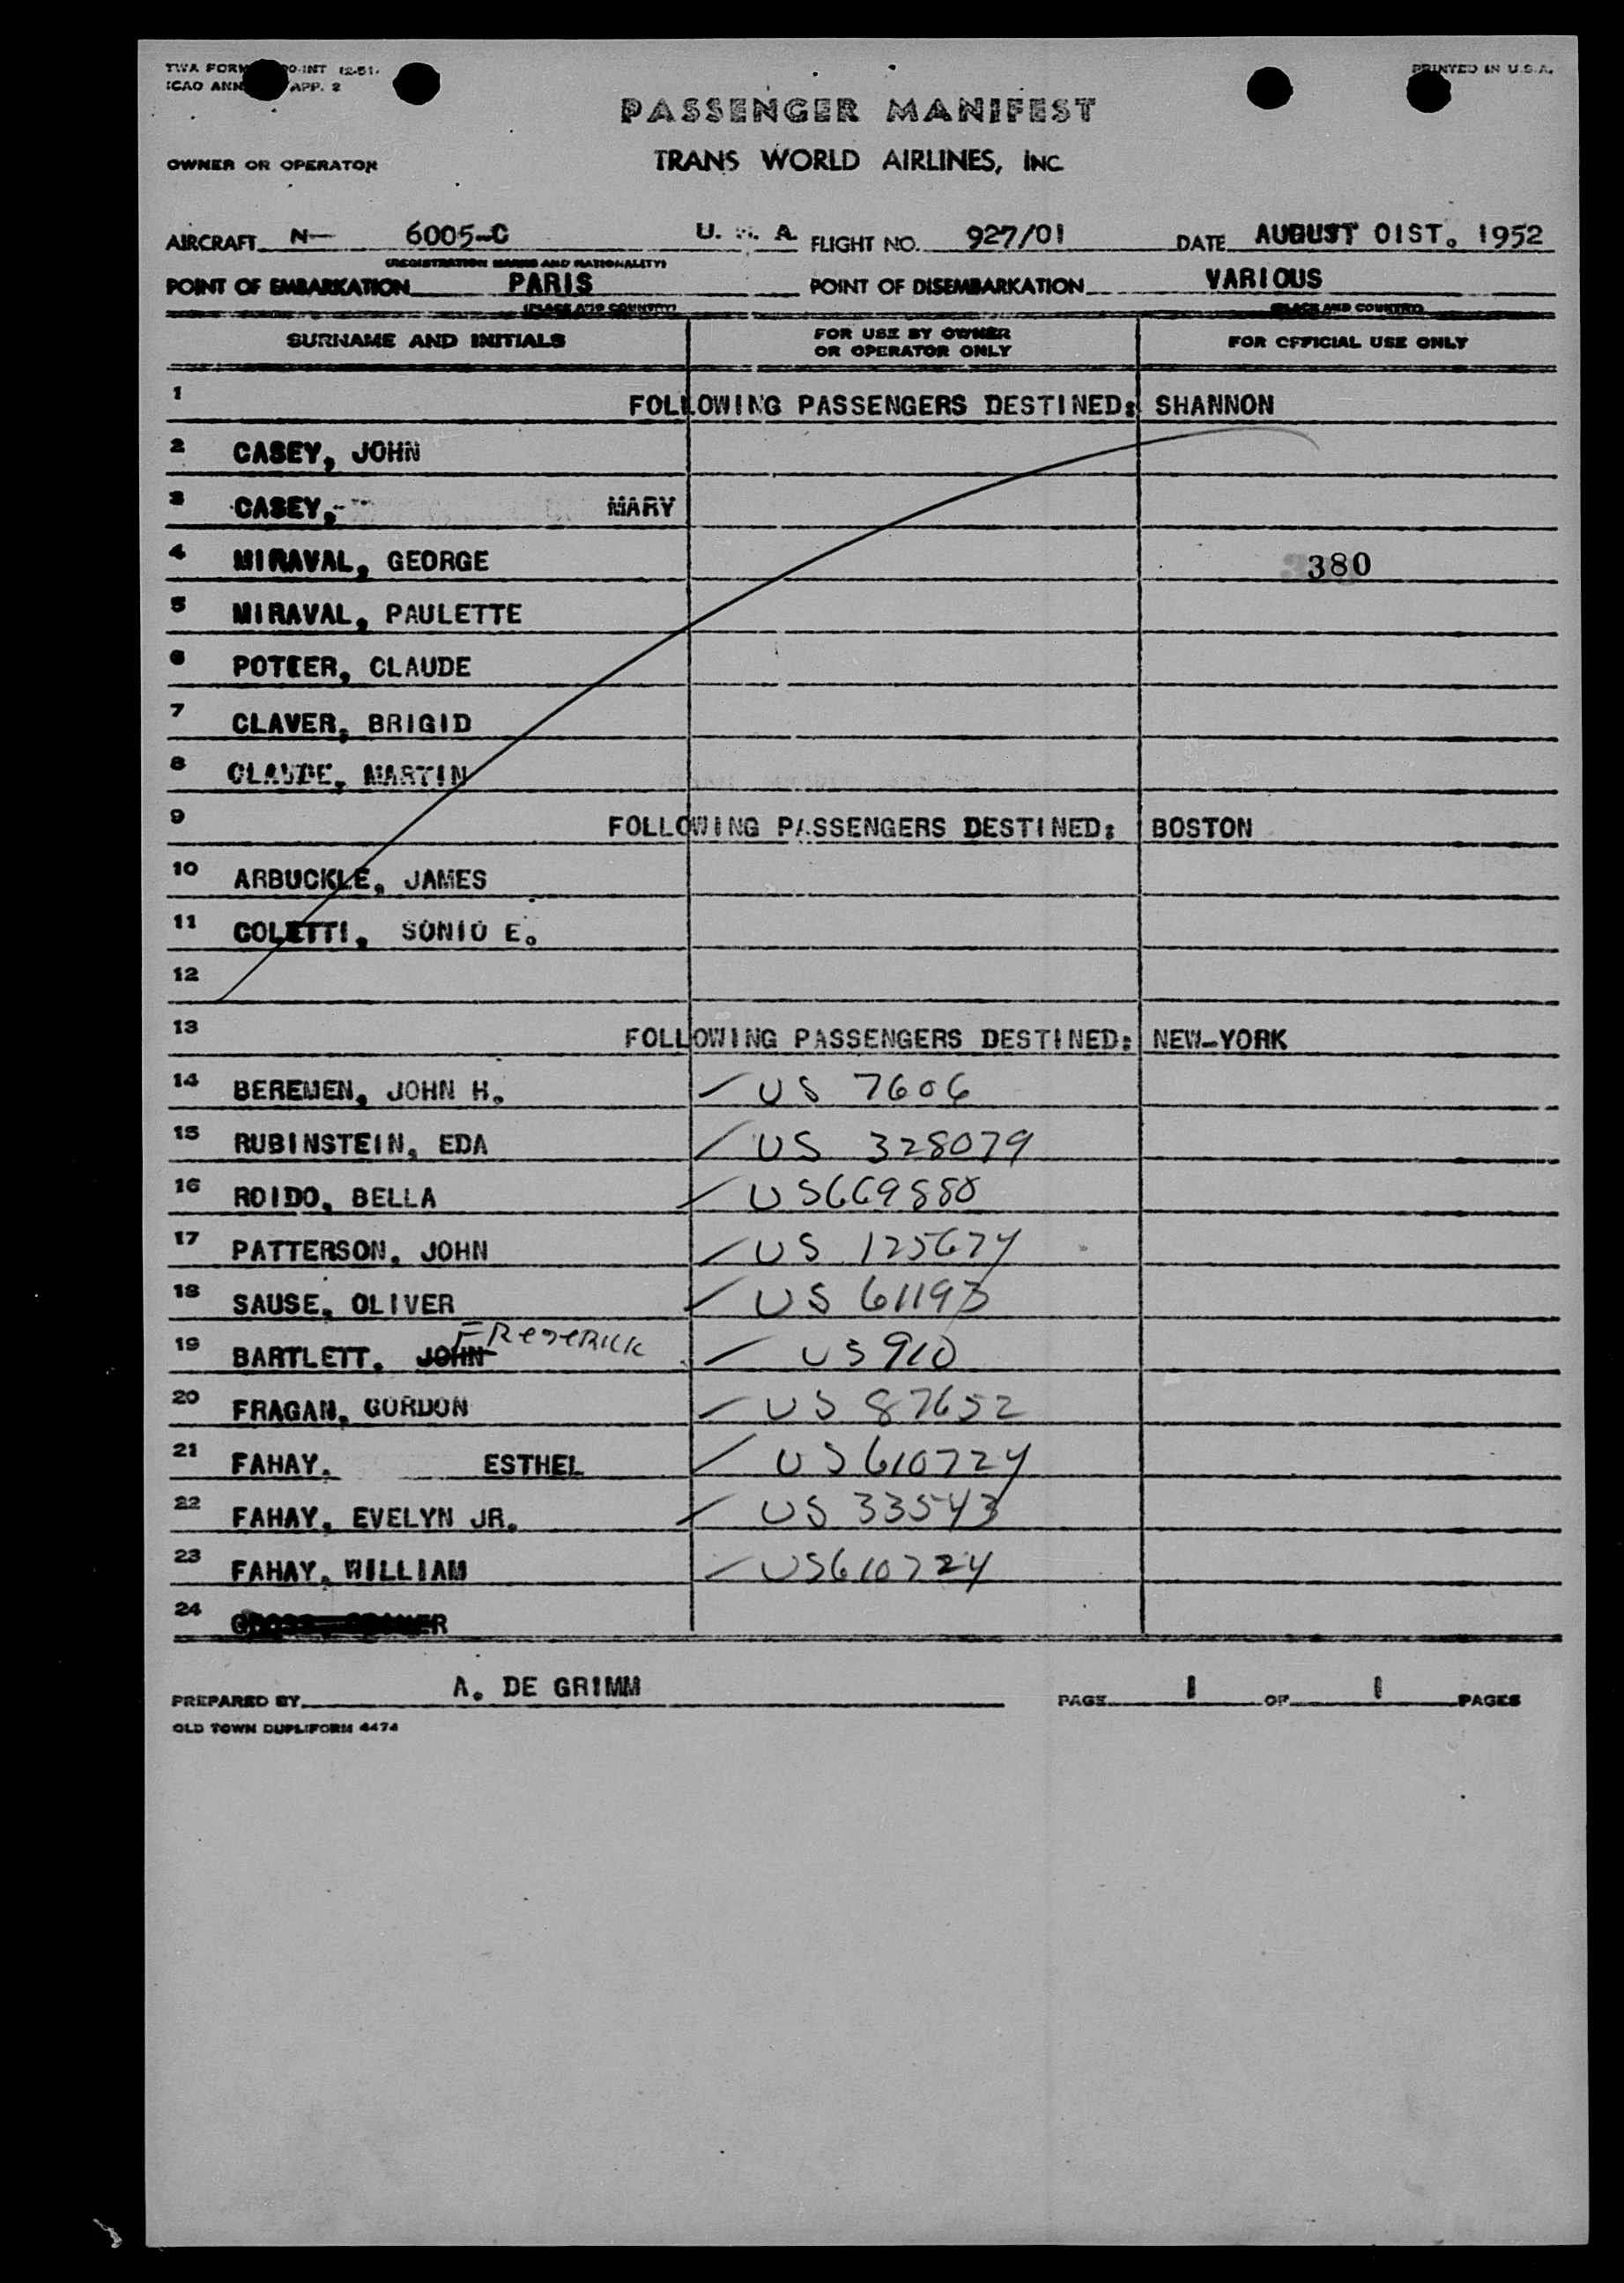 TWA FORM 00-INT (2-51)
ICAO ANN APP. 2
PRINTED IN U.S.A.
PASSENGER MANIFEST
OWNER OR OPERATOR TRANS WORLD AIRLINES, INC
AIRCRAFT N- 6005-C U. S. A. FLIGHT NO. 927/01 DATE AUGUST 01ST. 1952
(REGISTRATION MARKS AND NATIONALITY)
POINT OF EMBARKATION PARIS POINT OF DISEMBARKATION VARIOUS
(PLACE AND COUNTRY) (PLACE AND COUNTRY)
SURNAME AND INITIALS FOR USE BY OWNER OR OPERATOR ONLY FOR OFFICIAL USE ONLY
1 FOLLOWING PASSENGERS DESTINED: SHANNON
2 CASEY, JOHN
3 CASEY, MARY
4 MIRAVAL, GEORGE 380
5 MIRAVAL, PAULETTE
6 POTIER, CLAUDE
7 CLAVER, BRIGID
8 CLAUDE, MARTIN
9 FOLLOWING PASSENGERS DESTINED: BOSTON
10 ARBUCKLE, JAMES
11 COLETTI, SONIO E.
12
13 FOLLOWING PASSENGERS DESTINED: NEW-YORK
14 BEREMEN, JOHN H. US 7606
15 RUBINSTEIN, EDA US 328079
16 ROIDO, BELLA US669880
17 PATTERSON, JOHN US 125674
18 SAUSE, OLIVER US 61193
19 BARTLETT, JOHN FREDERICK US 910
20 FRAGAN, GORDON US 87652
21 FAHAY, ESTHEL US 610724
22 FAHAY, EVELYN JR. US 33543
23 FAHAY, WILLIAM US610724
24
PREPARED BY A. DE GRIMM PAGE 1 OF 1 PAGES
OLD TOWN DUPLIFORM 4474